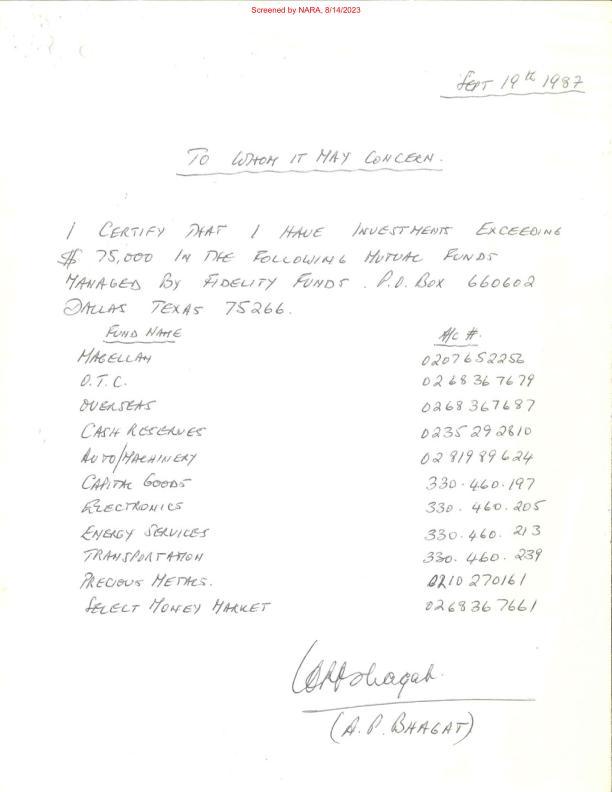 Screened by NARA, 8/14/2023
SEPT 19th 1987
TO WHOM IT MAY CONCERN.
I CERTIFY THAT I HAVE INVESTMENTS EXCEEDING
$ 75,000 IN THE FOLLOWING MUTUAL FUNDS
MANAGED BY FIDELITY FUNDS. P.O. BOX 660602
DALLAS TEXAS 75266.
FUND NAME A/C #.
MAGELLAN 0207652256
O.T.C. 0268367679
OVERSEAS 0268367687
CASH RESERVES 0235292810
AUTO/MACHINERY 0281989624
CAPITAL GOODS 330.460.197
ELECTRONICS 330.460.205
ENERGY SERVICES 330.460.213
TRANSPORTATION 330.460.239
PRECIOUS METALS. 0210270161
SELECT MONEY MARKET 0268367661
APBhagat.
(A.P. BHAGAT)